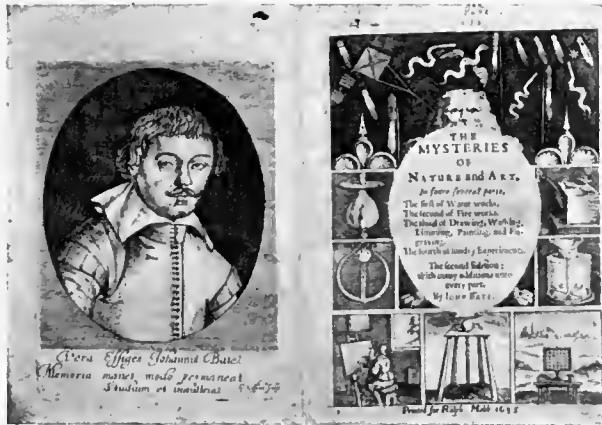 Vera Effigies Johannis Batet
Memoria manet modo permaneat
Studium et industria
THE
MYSTERIES
OF
NATURE and ART,
In foure severall parts,
The first of Water works,
The second of Fire works,
The third of Drawing, Washing,
Limming, Painting, and En-
graving,
The fourth of sundry Experiments.
The second Edition;
with many additions unto
every part.
By IOHN BATE.
Printed for Ralph Mabb 1635